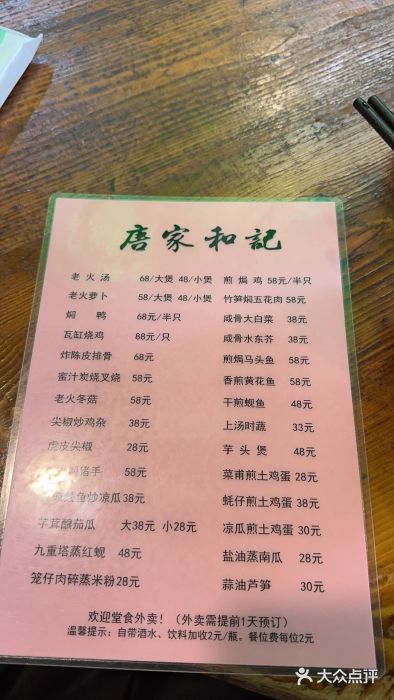 唐家和記
老火汤 68/大煲 48/小煲
老火萝卜 58/大煲 48/小煲
焖鸭 68元/半只
瓦缸烧鸡 88元/只
炸陈皮排骨 68元
蜜汁炭烧叉烧 58元
老火冬菇 58元
尖椒炒鸡杂 38元
虎皮尖椒 28元
猪手 58元
鱼炒凉瓜38元
芋茸酿茄瓜 大38元 小28元
九重塔蒸红蚬 48元
笼仔肉碎蒸米粉28元
煎焗鸡 58元/半只
竹笋焖五花肉 58元
咸骨大白菜 38元
咸骨水东芥 38元
煎焗马头鱼 58元
香煎黄花鱼 58元
干煎蚬鱼 48元
上汤时蔬 33元
芋头煲 48元
菜甫煎土鸡蛋 28元
蚝仔煎土鸡蛋 38元
凉瓜煎土鸡蛋 30元
盐油蒸南瓜 28元
蒜油芦笋 30元
欢迎堂食外卖！（外卖需提前1天预订）
温馨提示：自带酒水、饮料加收2元/瓶。餐位费每位2元
大众点评